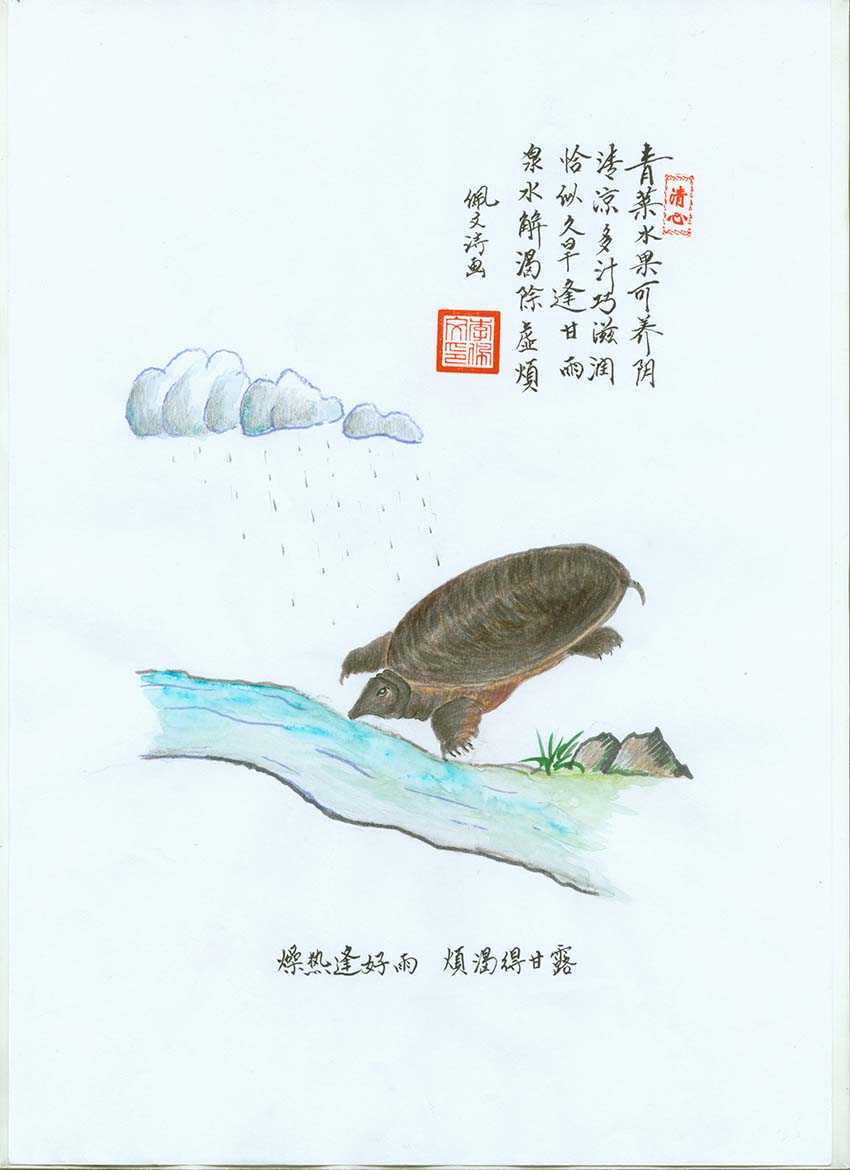 清心
青菜水果可养阴
清凉多汁巧滋润
恰似久旱逢甘雨
泉水解渴除虚煩
佩文涛画
李佩文印
燥热逢好雨 煩渴得甘露